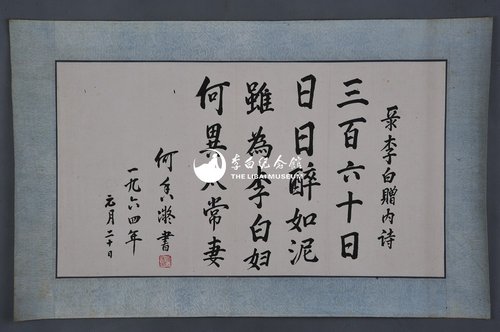 录李白贈内诗
三百六十日
日日醉如泥
雖為李白妇
何異太常妻
何香凝書
一九六四年
元月二十日
李白纪念館
THE LIBAI MUSEUM